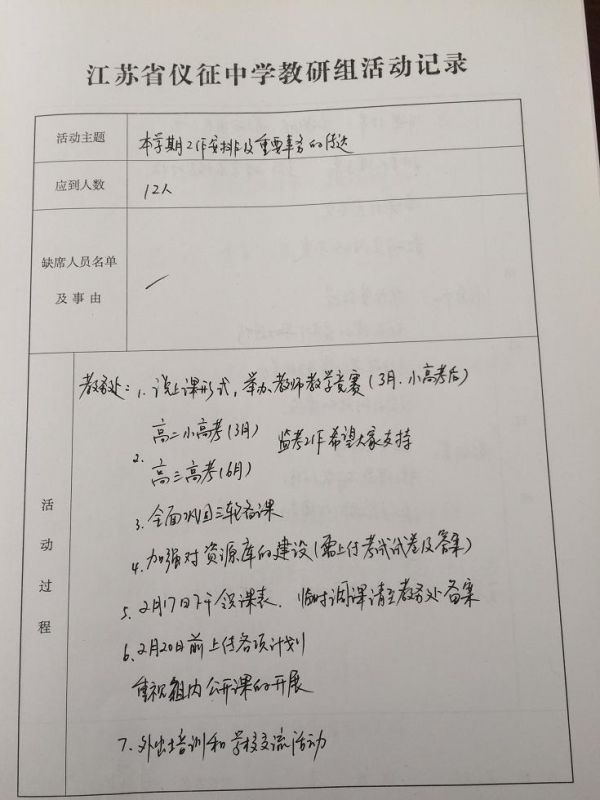 江苏省仪征中学教研组活动记录
活动主题 本学期工作安排及重要事务的传达
应到人数 12人
缺席人员名单
及事由
活动过程
教务处：1. 说上课形式，举办教师教学竞赛（3月.小高考后）
高二小高考（3月）
2. 监考工作希望大家支持
高三高考（6月）
3. 全面巩固三轮备课
4. 加强对资源库的建设（需上传考试试卷及答案）
5. 2月17日下午领课表. 临时调课请至教务处备案
6. 2月20日前上传各项计划
重视组内公开课的开展
7. 外出培训和学校交流活动